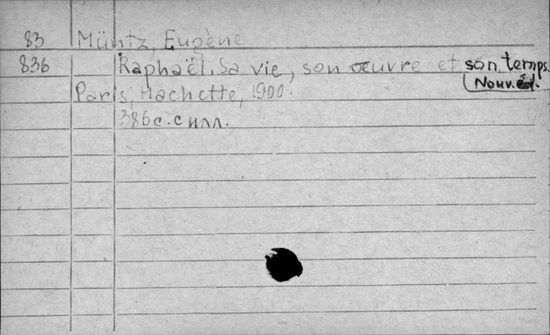 83 Müntz, Eugène
836 Raphaël. Sa vie, son œuvre et son temps.
Nouv. éd.
Paris, Hachette, 1900.
386 с. с илл.